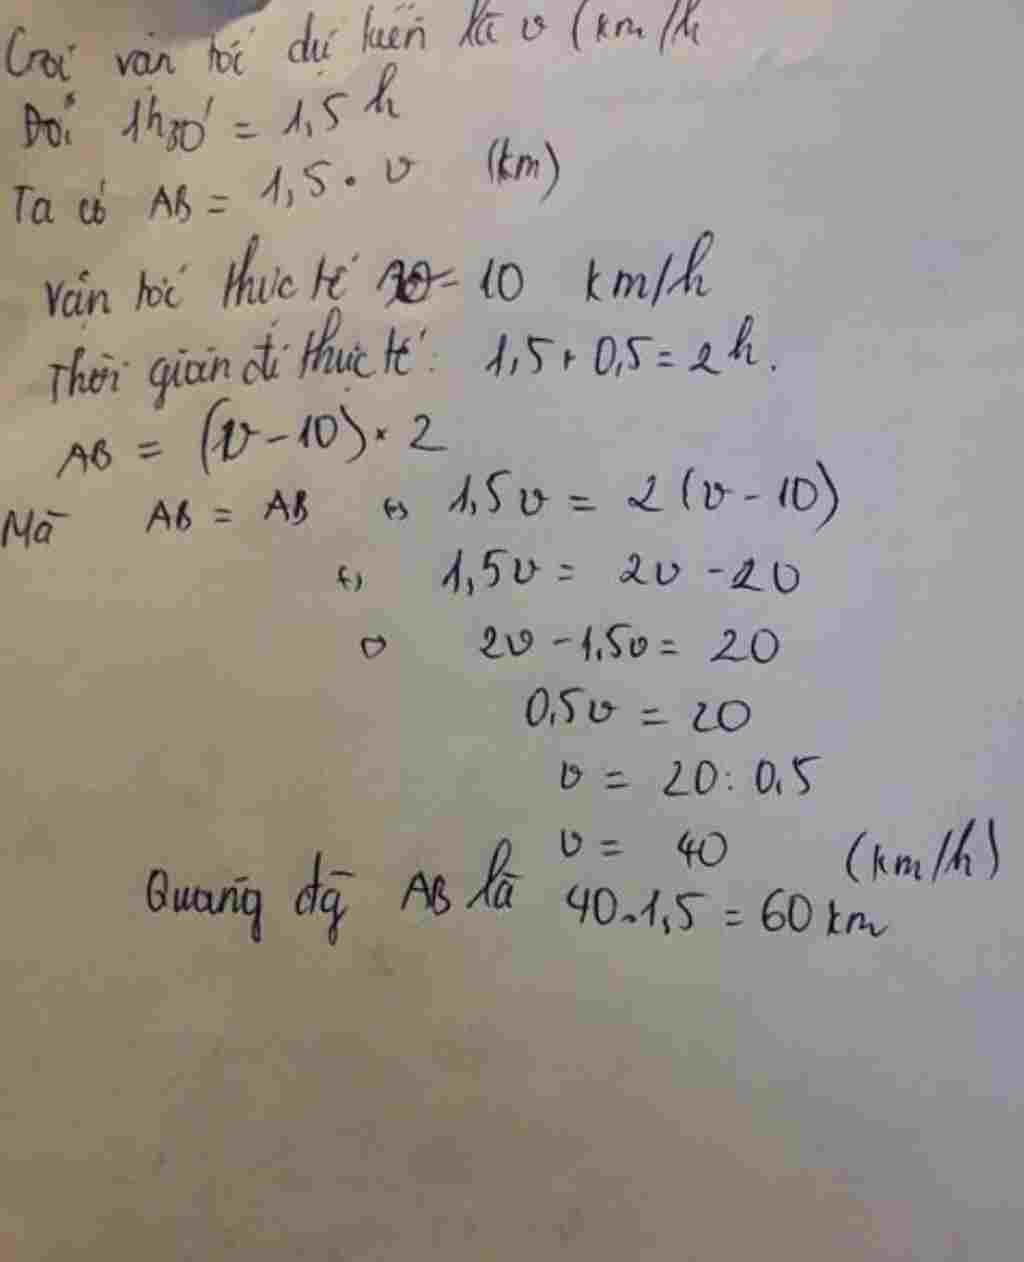 Gọi vận tốc dự kiến là v (km/h
Đổi 1h30' = 1,5 h
Ta có AB = 1,5 . v (km)
Vận tốc thực tế = 10 km/h
Thời gian đi thực tế: 1,5 + 0,5 = 2h.
AB = (v - 10) × 2
Mà AB = AB <=> 1,5v = 2 (v - 10)
<=> 1,5v = 2v - 20
<=> 2v - 1,5v = 20
0,5v = 20
v = 20 : 0,5
v = 40 (km/h)
Quãng đg AB là 40.1,5 = 60 km